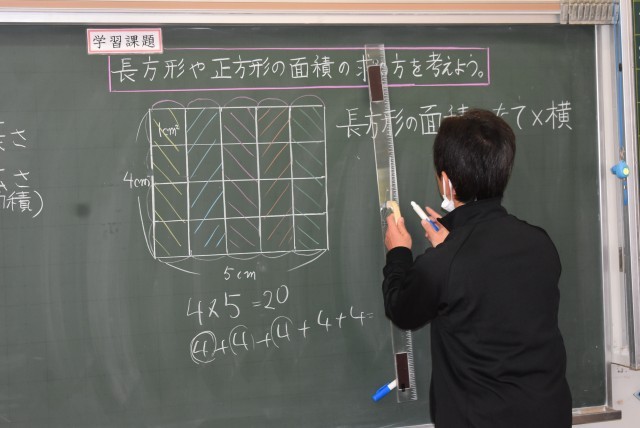 学習課題
長方形や正方形の面積の求め方を考えよう。
長方形の面積 たて×横
1cm²
4cm
5cm
4×5=20
4+4+4+4+4=
さ
さ
積)